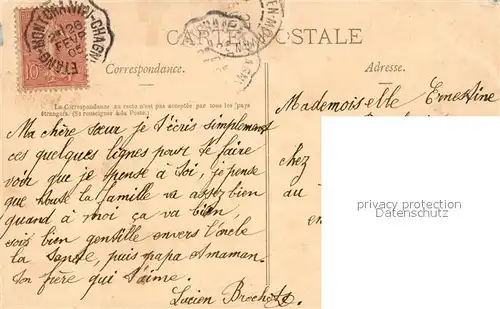 CARTE POSTALE
Correspondance.
Adresse.
La Correspondance au recto n'est pas acceptée par tous les pays
étrangers. (Se renseigner à la Poste.)
ETANG-MONTCHANIN-CHAGNY
10
Ma chère sœur je t'écris simplement
ces quelques lignes pour te faire
voir que je pense à toi, je pense
que toute la famille va assez bien
quand à moi ça va bien,
sois bien gentille envers l'oncle
la tante, puis papa et maman.
ton frère qui t'aime.
Lucien
Mademoiselle Ernestine
chez
au
protected by copyright
Datenschutz